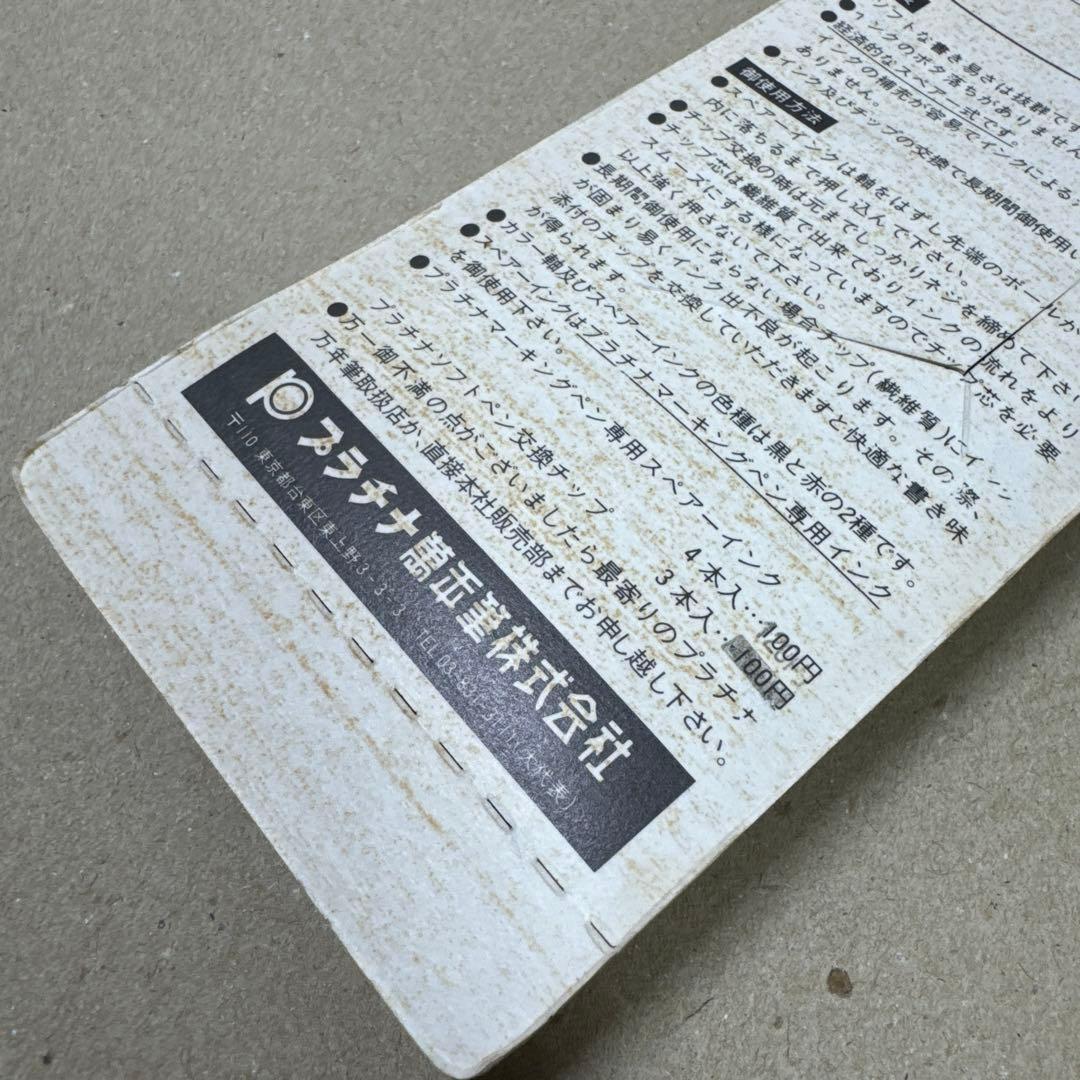 ソフトな書き易さは抜群です
●インクのボタ落ちがありません
●経済的なスペアー式です。
インクの補充が容易でインクによる
ありません。
●インク及びチップの交換で長期間御使用い
御使用方法
●スペアーインクは軸をはずし先端のボールが
内に落ちるまで押し込んで下さい。
●チップ交換の時は元までしっかりネジを締って下さい
●チップ芯は繊維質で出来ておりインクの流れをより
スムーズにする様になっていますのでチップ芯を必要
以上強く押さないで下さい。
●長期間御使用にならない場合チップ(繊維質)にイン
が固まり易くインク出不良が起こります。その際、
添付のチップを交換していただきますと快適な書き味
が得られます。
●カラー軸及びスペアーインクの色種は黒と赤の2種です。
●スペアーインクはプラチナマーキングペン専用インク
を御使用下さい。
●プラチナマーキングペン専用スペアーインク
4本入…100円
プラチナソフトペン交換チップ 3本入…100円
●万一御不満の点がございましたら最寄りのプラチナ
万年筆取扱店か、直接本社販売部までお申し越し下さい。
プラチナ萬年筆株式会社
〒110 東京都台東区東上野3-3-3 TEL 03(